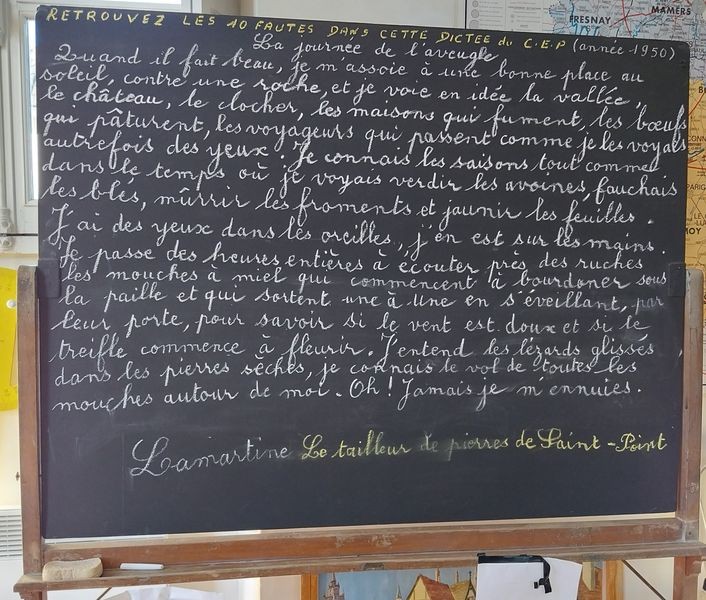 RETROUVEZ LES 10 FAUTES DANS CETTE DICTEE du C.E.P (année 1950)
La journée de l'aveugle
Quand il fait beau, je m'associe à une bonne place au
soleil, contre une roche, et je voie en idée la vallée,
le château, le clocher, les maisons qui fument, les bœufs
qui pâturent, les voyageurs qui passent comme je les voyais
autrefois des yeux. Je connais les saisons tout comme
dans le temps où je voyais verdir les avoines, fauchais
les blés, mûrrir les froments et jaunir les feuilles.
J'ai des yeux dans les oreilles, j'en est sur les mains.
Je passe des heures entières à écouter près des ruches
les mouches à miel qui commencent à bourdoner sous
la paille et qui sortent une à une en s'éveillant, par
leur porte, pour savoir si le vent est doux et si le
treifle commence à fleurir. J'entend les lézards glissés
dans les pierres sèches, je connais le vol de toutes les
mouches autour de moi. Oh! Jamais je m'ennuies.
Lamartine Le tailleur de pierres de Saint-Point
FRESNAY
MAMERS